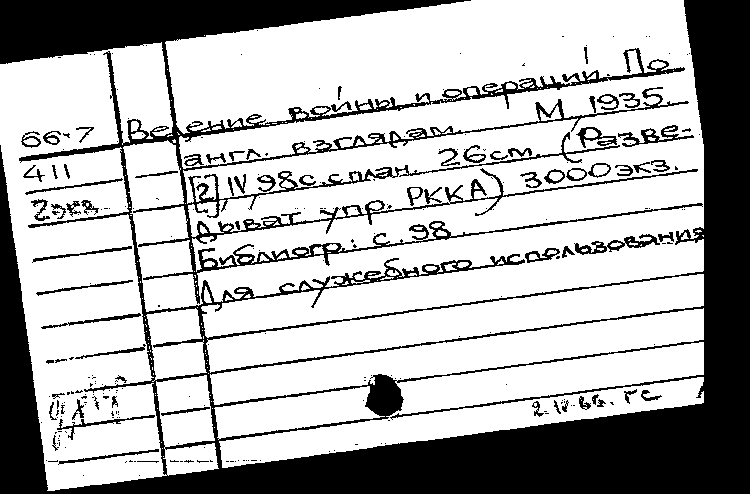 66-7 Ведение войны и операций. По
411 англ. взглядам. М, 1935.
2экз [2], IV, 98с. с план. 26см. (Разве-
дыват упр. РККА) 3000экз.
Библиогр.: с. 98.
Для служебного использования
2.IV.66. ГС